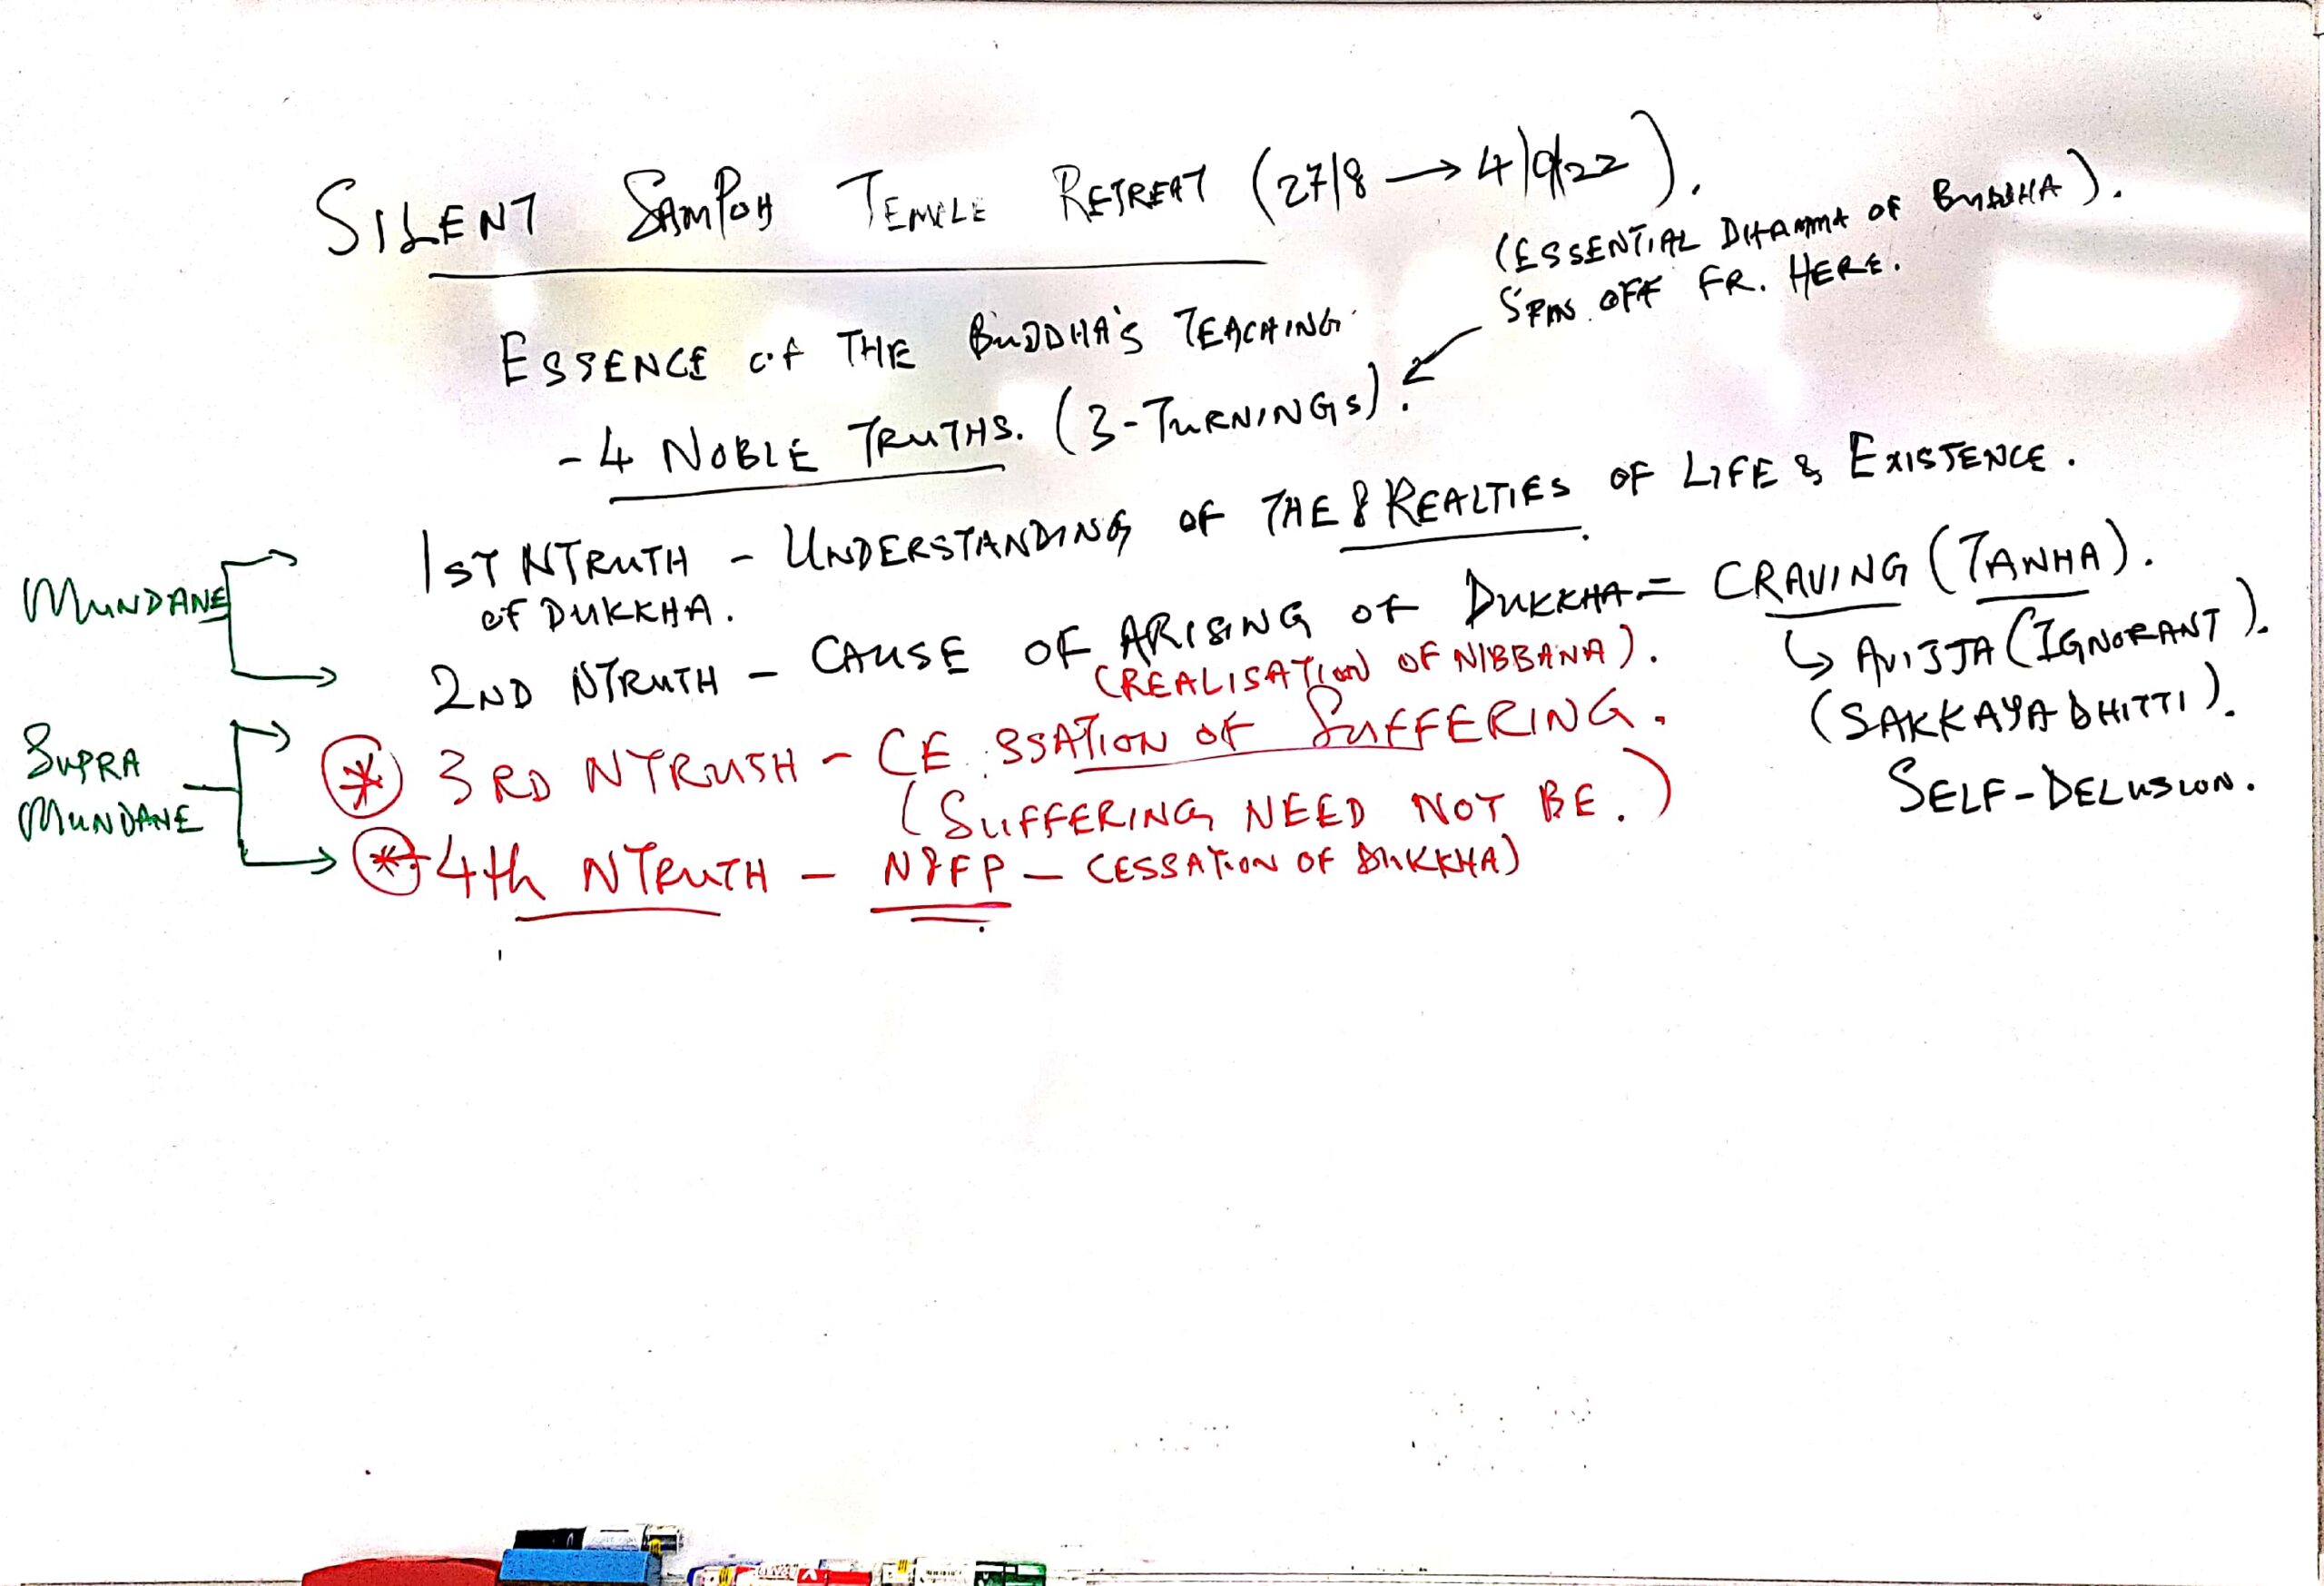 SILENT SAMPOH TEMPLE RETREAT (27/8 → 4/9/22).
(ESSENTIAL DHAMMA OF BUDDHA).
SPIN OFF FR. HERE.
ESSENCE OF THE BUDDHA'S TEACHING
- 4 NOBLE TRUTHS. (3-TURNINGS).
MUNDANE
1ST NTRUTH - UNDERSTANDING OF THE 8 REALTIES OF LIFE & EXISTENCE.
OF DUKKHA.
2ND NTRUTH - CAUSE OF ARISING OF DUKKHA = CRAVING (TANHA).
↳ AVIJJA (IGNORANT).
(SAKKAYA DHITTI).
SELF-DELUSION.
SUPRA
MUNDANE
(REALISATION OF NIBBANA).
* 3RD NTRUSH - CESSATION OF SUFFERING.
(SUFFERING NEED NOT BE.)
* 4th NTRUTH - N8FP - CESSATION OF DUKKHA)